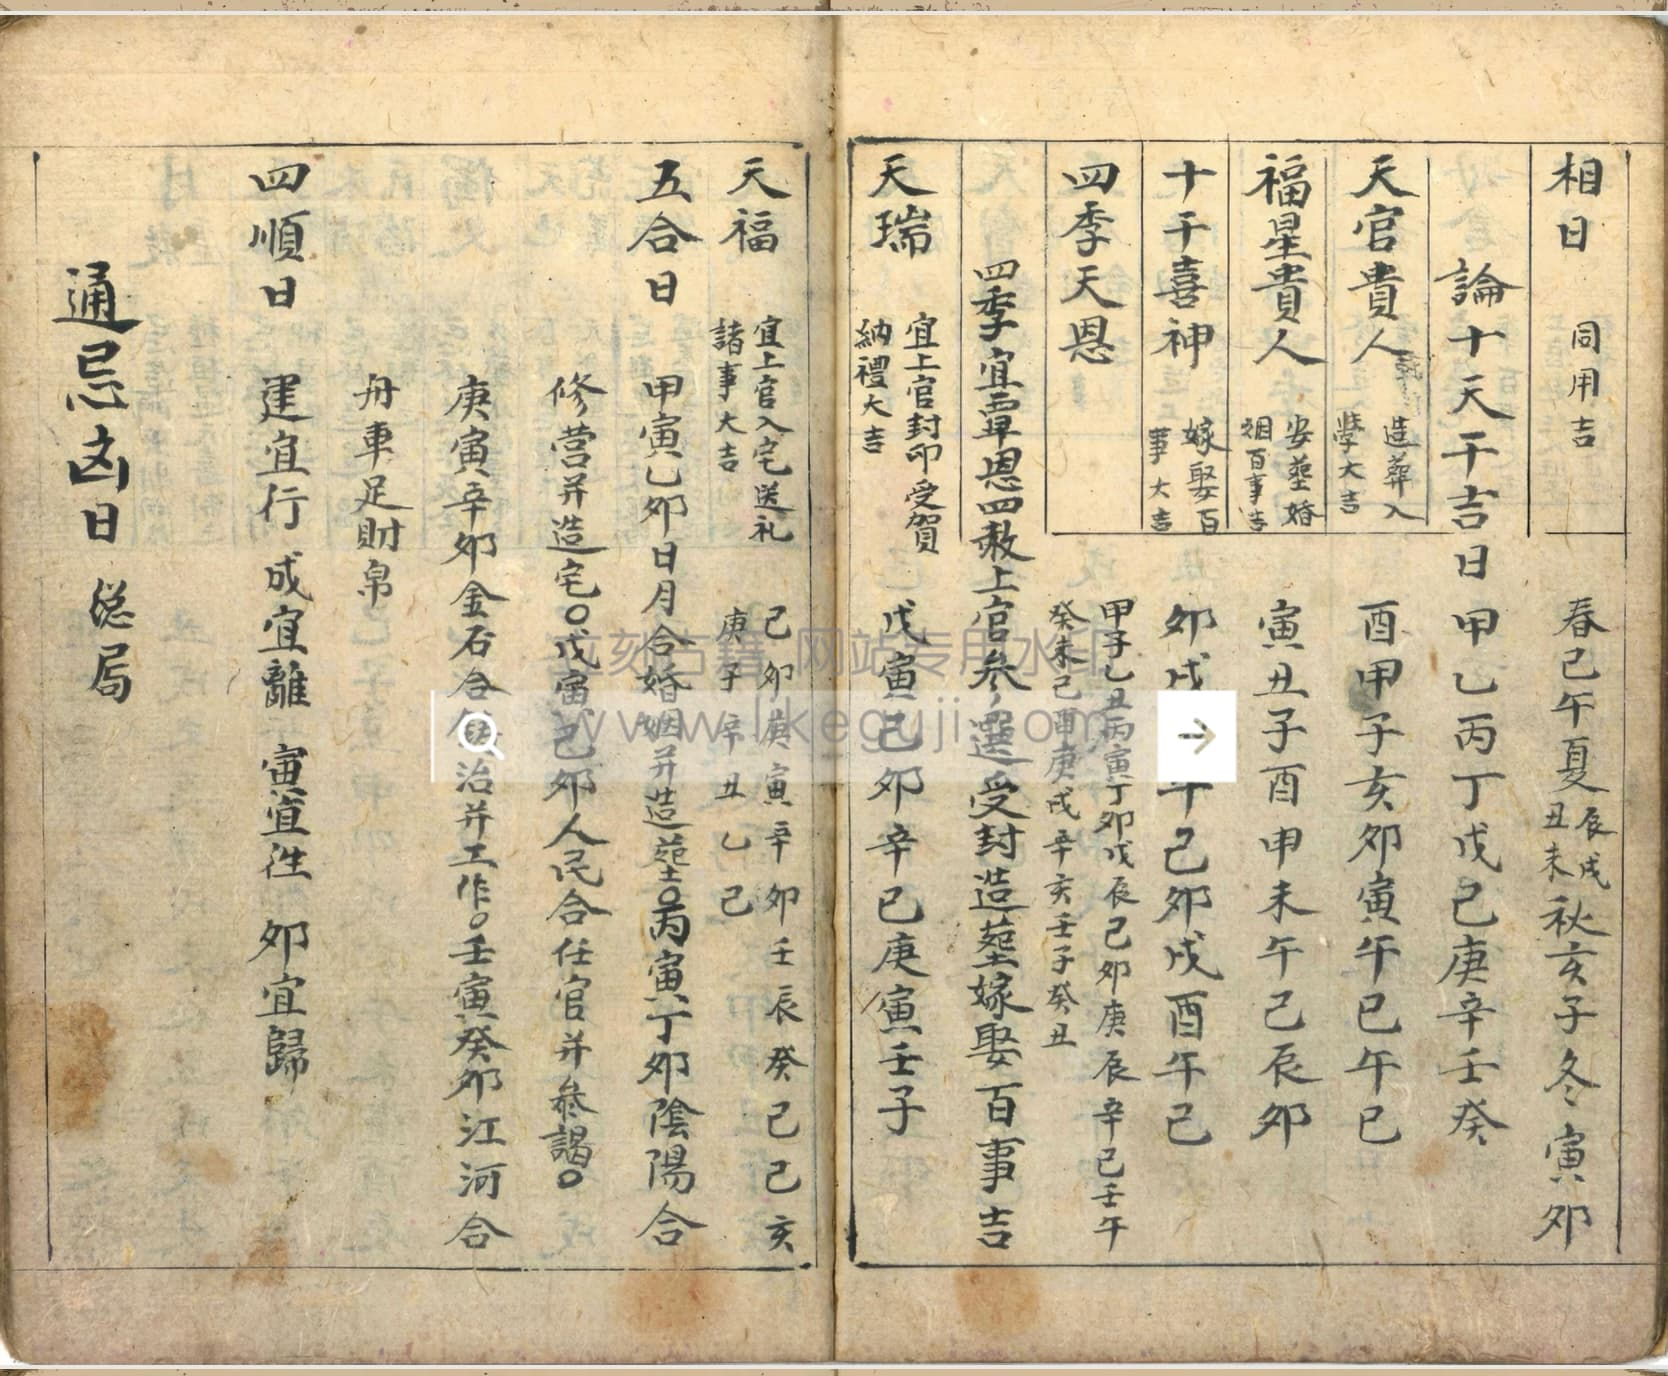 相日 同用吉 春巳午夏辰戌丑未秋亥子冬寅卯
論十天干吉日 甲乙丙丁戊己庚辛壬癸
天官貴人 造葬入學大吉 酉甲子亥卯寅午巳午巳
福星貴人 安塟婚姻百事吉 寅丑子酉申未午巳辰卯
十干喜神 嫁娶百事大吉 卯戌午己卯戌酉午己
四季天恩 甲子乙丑丙寅丁卯戊辰己卯庚辰辛巳壬午
癸未己酉庚戌辛亥壬子癸丑
四季宜覃恩四赦上官叅選受封造塟嫁娶百事吉
天瑞 宜上官封印受賀納禮大吉 戊寅己卯辛巳庚寅壬子
天福 宜上官入宅送礼諸事大吉 己卯庚寅辛卯壬辰癸巳己亥
庚子辛丑乙巳
五合日 甲寅乙卯日月合婚姻并造塟○丙寅丁卯陰陽合
修营并造宅○戊寅己卯人民合任官并叅謁○
庚寅辛卯金石合治并工作○壬寅癸卯江河合
舟車足財帛
四順日 建宜行 成宜離 寅宜往 卯宜歸
通忌凶日 总局
立刻古籍 网站专用水印
www.likeguji.com